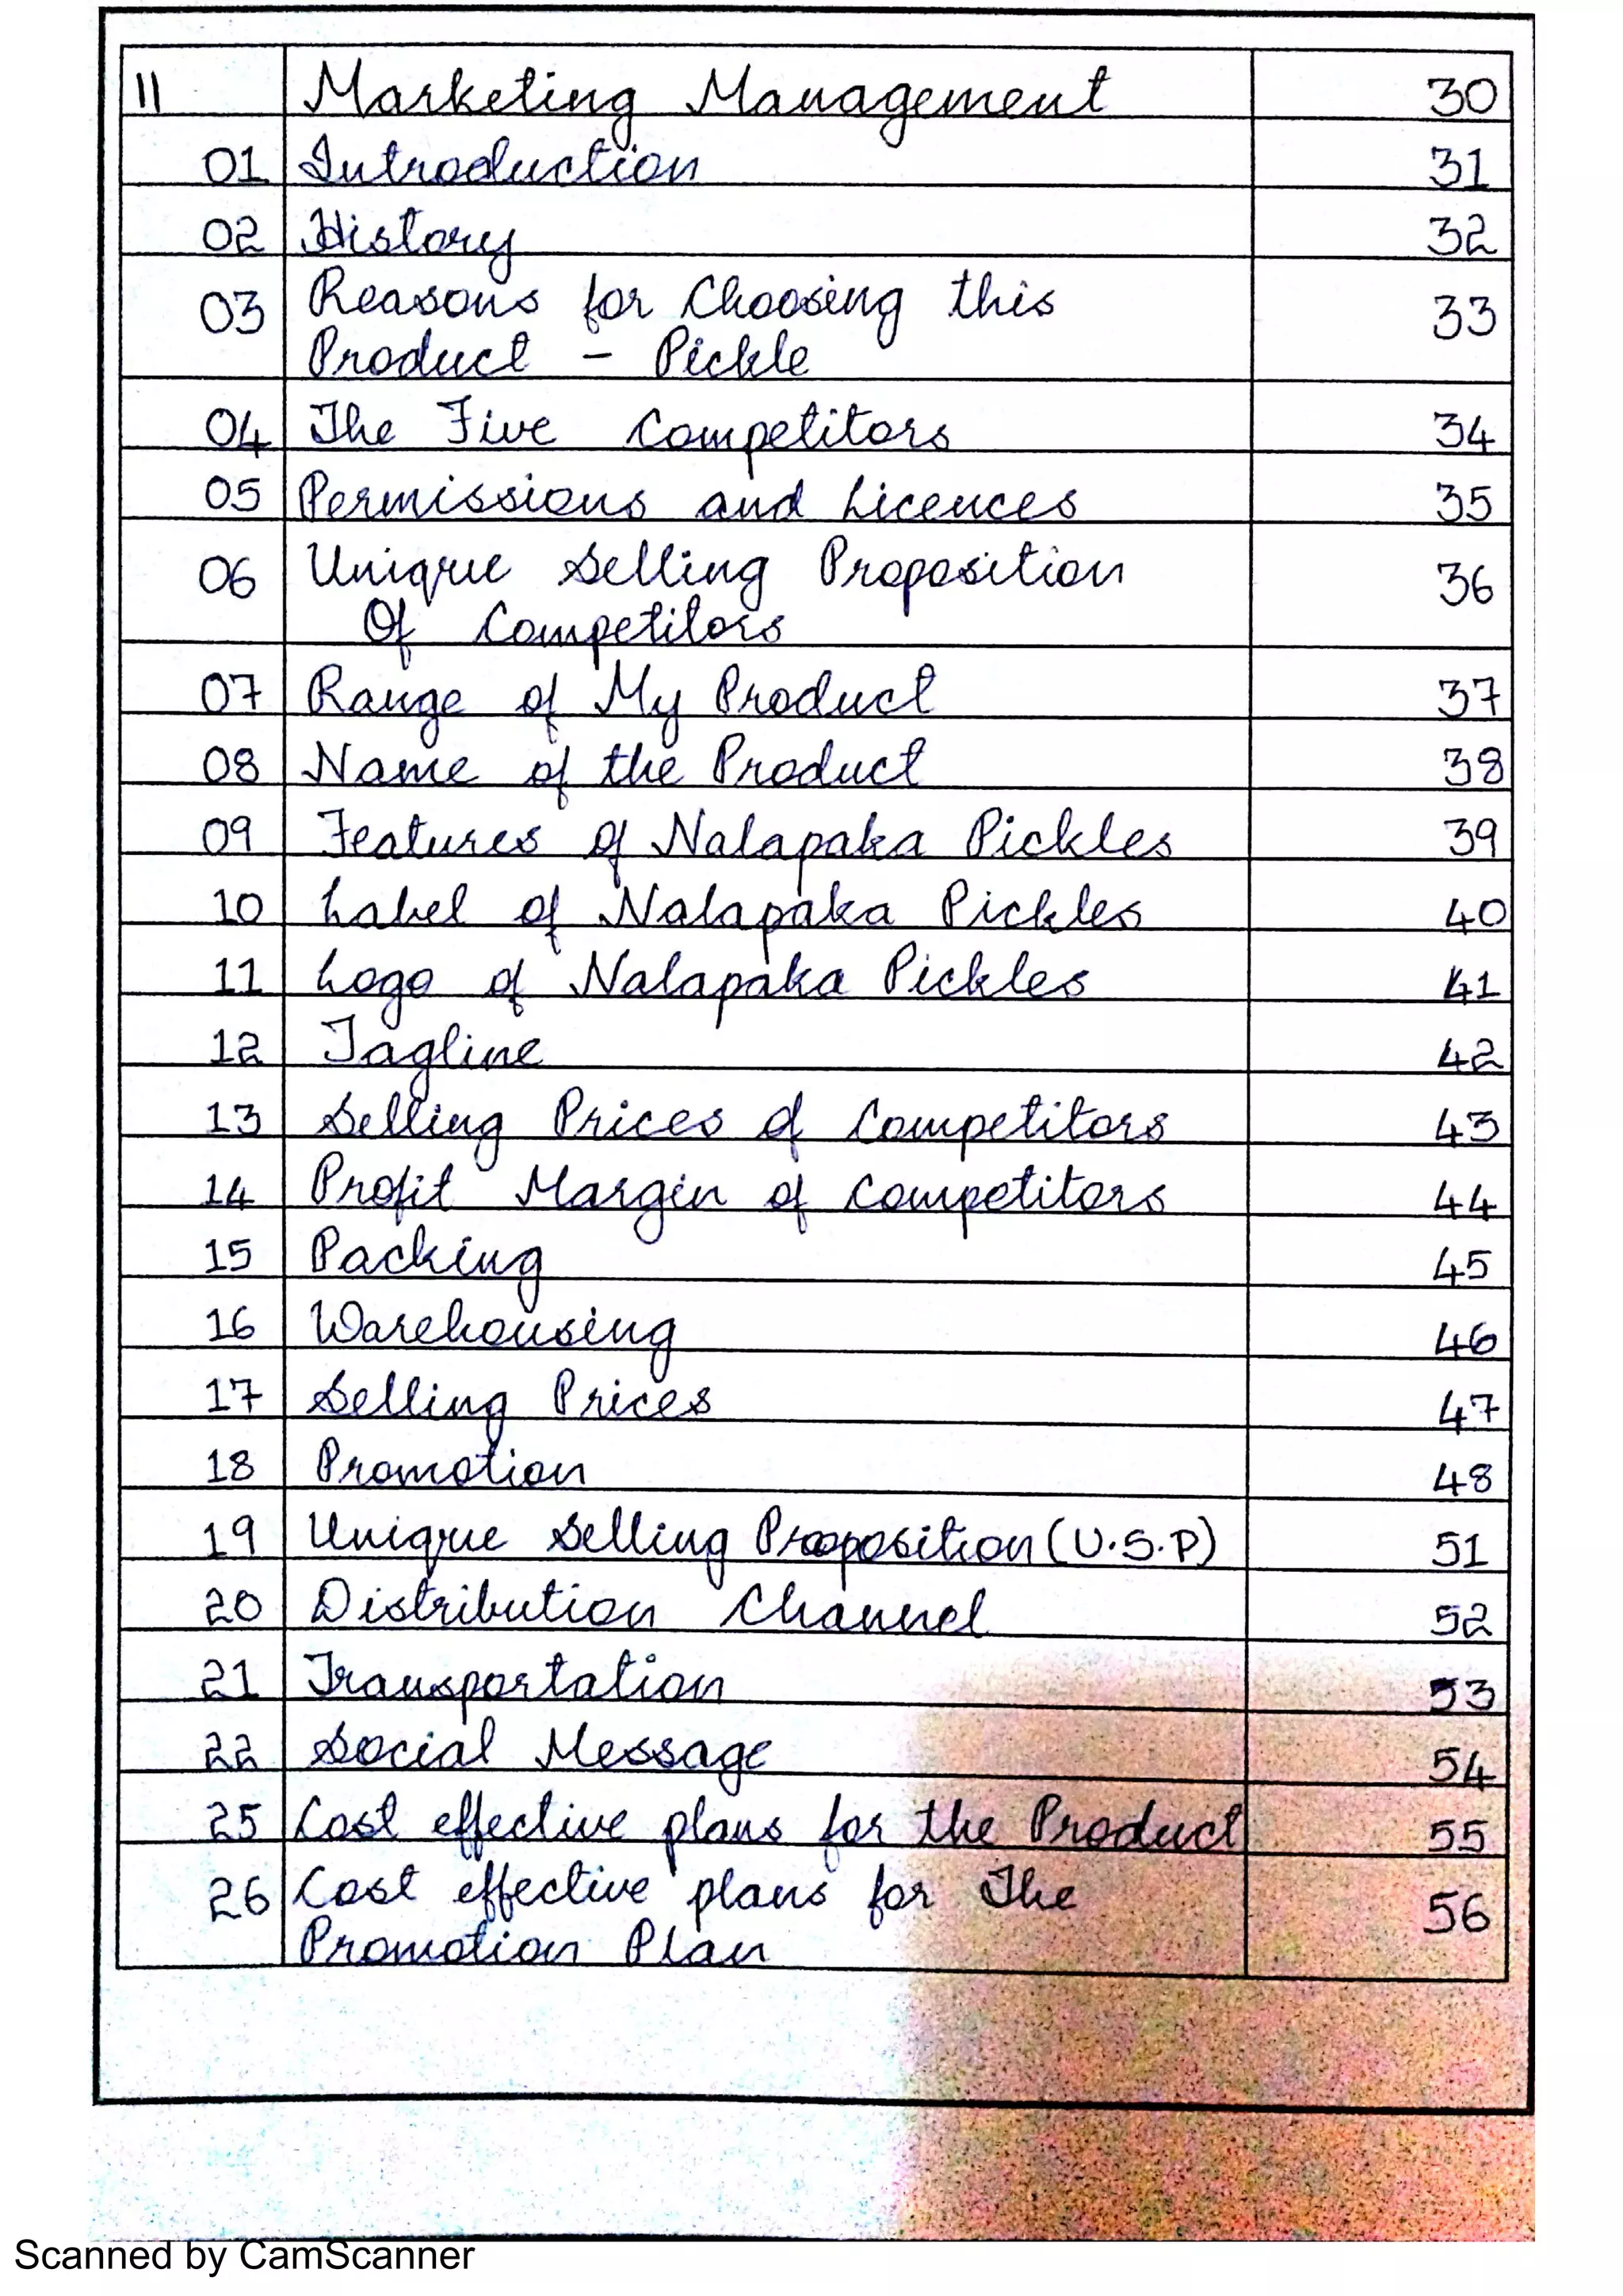 11 Marketing Management 30
01 Introduction 31
02 History 32
03 Reasons for Choosing this 33
Product - Pickle
04 The Five Competitors 34
05 Permissions and Licences 35
06 Unique Selling Proposition 36
Of Competitors
07 Range of My Product 37
08 Name of the Product 38
09 Features of Nalapaka Pickles 39
10 Label of Nalapaka Pickles 40
11 Logo of Nalapaka Pickles 41
12 Tagline 42
13 Selling Prices of Competitors 43
14 Profit Margin of Competitors 44
15 Packing 45
16 Warehousing 46
17 Selling Prices 47
18 Promotion 48
19 Unique Selling Proposition (U.S.P) 51
20 Distribution Channel 52
21 Transportation 53
22 Social Message 54
25 Cost effective plans for the Product 55
26 Cost effective plans for The 56
Promotion Plan
Scanned by CamScanner